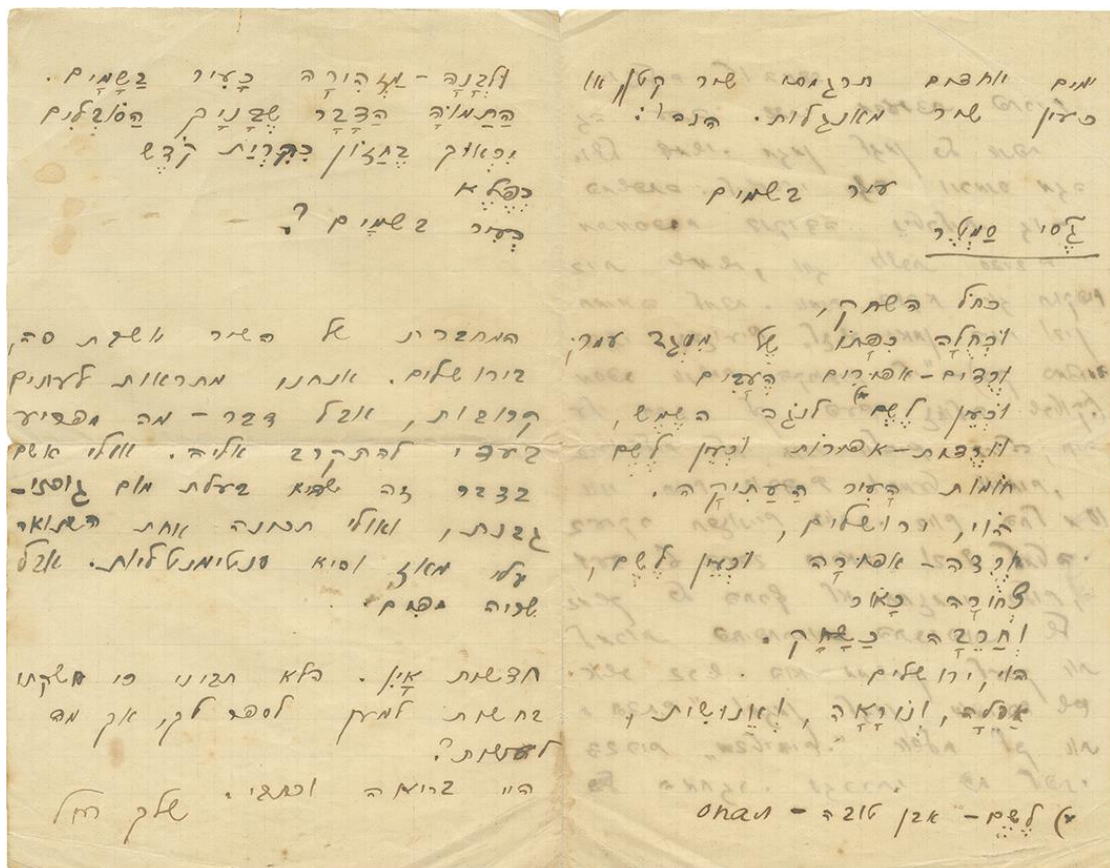 ימים אחדים תרגמתי שיר קטן, או
כעין שיר מאנגלית. הנהו:
עיר בשמים
גֶ'סי סַמְטֶר
כחֹל השחק,
וּכְחֻלָּה כִּפָּתוֹ שֶׁל מִסְגַּד עמר.
וְרֻדִּים-אפורים הֶעָבִים
וּכְעֵין לֶשֶׁם לנֹגַהּ השֶׁמש,
וּוְרֻדּוֹת-אפורות וּכְעֵין לֶשֶׁם
חוֹמוֹת הָעִיר הָעַתִּיקָה.
הוֹי, ירושלים,
וְרֻדָּה-אפורָה וּכְעֵין לֶשֶׁם,
צְחוֹרָה כָּאוֹר
וַחֲרֵבָה כַּשַּׁחַק.
הוי, ירושלים
אֲפֵלָה, וְנוֹרָאָה, וֶאֱנוּשִׁית,
*) לֶשֶׁם – אבן טובה –
וּלְבָנָה – מַזְהִירָה כָּעִיר בַּשָּׁמַיִם.
הֲתַמּוּהַּ הַדָּבָר שֶׁבָּנַיִךְ הַסּוֹבְלִים
יִרְאוּךְ בֶּחָזוֹן כְּקִרְיַת קֹדֶשׁ
כְּפֶלֶא
כְּעִיר בשמַיִם?
המחברת של השיר יושבת פה,
בירושלים. אנחנו מתראות לעתים
קרובות, אבל דבר-מה מפריע
בעדי להתקרב אליה. אולי אשם
בדבר זה שהיא בעלת מום גופני –
גבנת, ואולי תכונה אחת השנואה
עלי מאוד והיא סנטימנטליות. אבל
שיריה יפים.
חדשות אָיִן. הלא תביני כי חשקתי
בחדשות למען לספר לך, אך מה
לעשות?
היי בריאה וכתבי. שלך רחל